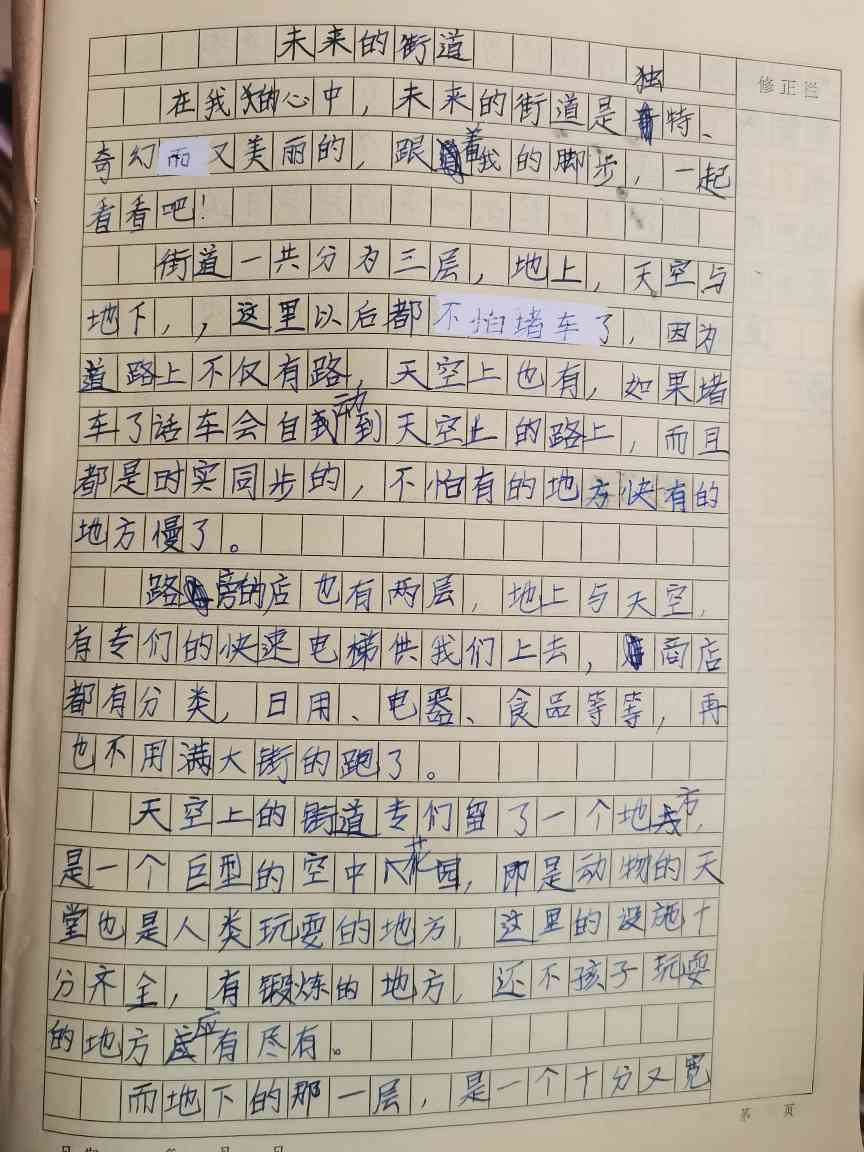 未来的街道
修正栏
在我的心中，未来的街道是独特、
奇幻而又美丽的，跟着我的脚步，一起
看看吧！
街道一共分为三层，地上，天空与
地下，，这里以后都不怕堵车了，因为
道路上不仅有路，天空上也有，如果堵
车了话车会自动到天空上的路上，而且
都是时实同步的，不怕有的地方快有的
地方慢了。
路旁的店也有两层，地上与天空，
有专们的快速电梯供我们上去，商店
都有分类，日用、电器、食品等等，再
也不用满大街的跑了。
天空上的街道专们留了一个地方，
是一个巨型的空中花园，即是动物的天
堂也是人类玩耍的地方，这里的设施十
分齐全，有锻炼的地方，还不孩子玩耍
的地方应有尽有。
而地下的那一层，是一个十分又宽
第 页